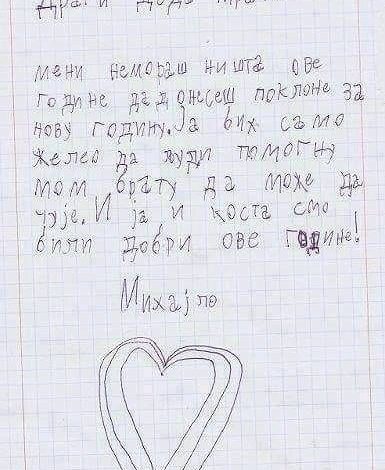 Драги Деда Мраз
мени немораш ништа ове
године да донесеш поклоне за
нову годину. Ја бих само
желео да људи помогну
мом брату да може да
чује. И ја и Коста смо
били добри ове године!
Михајло